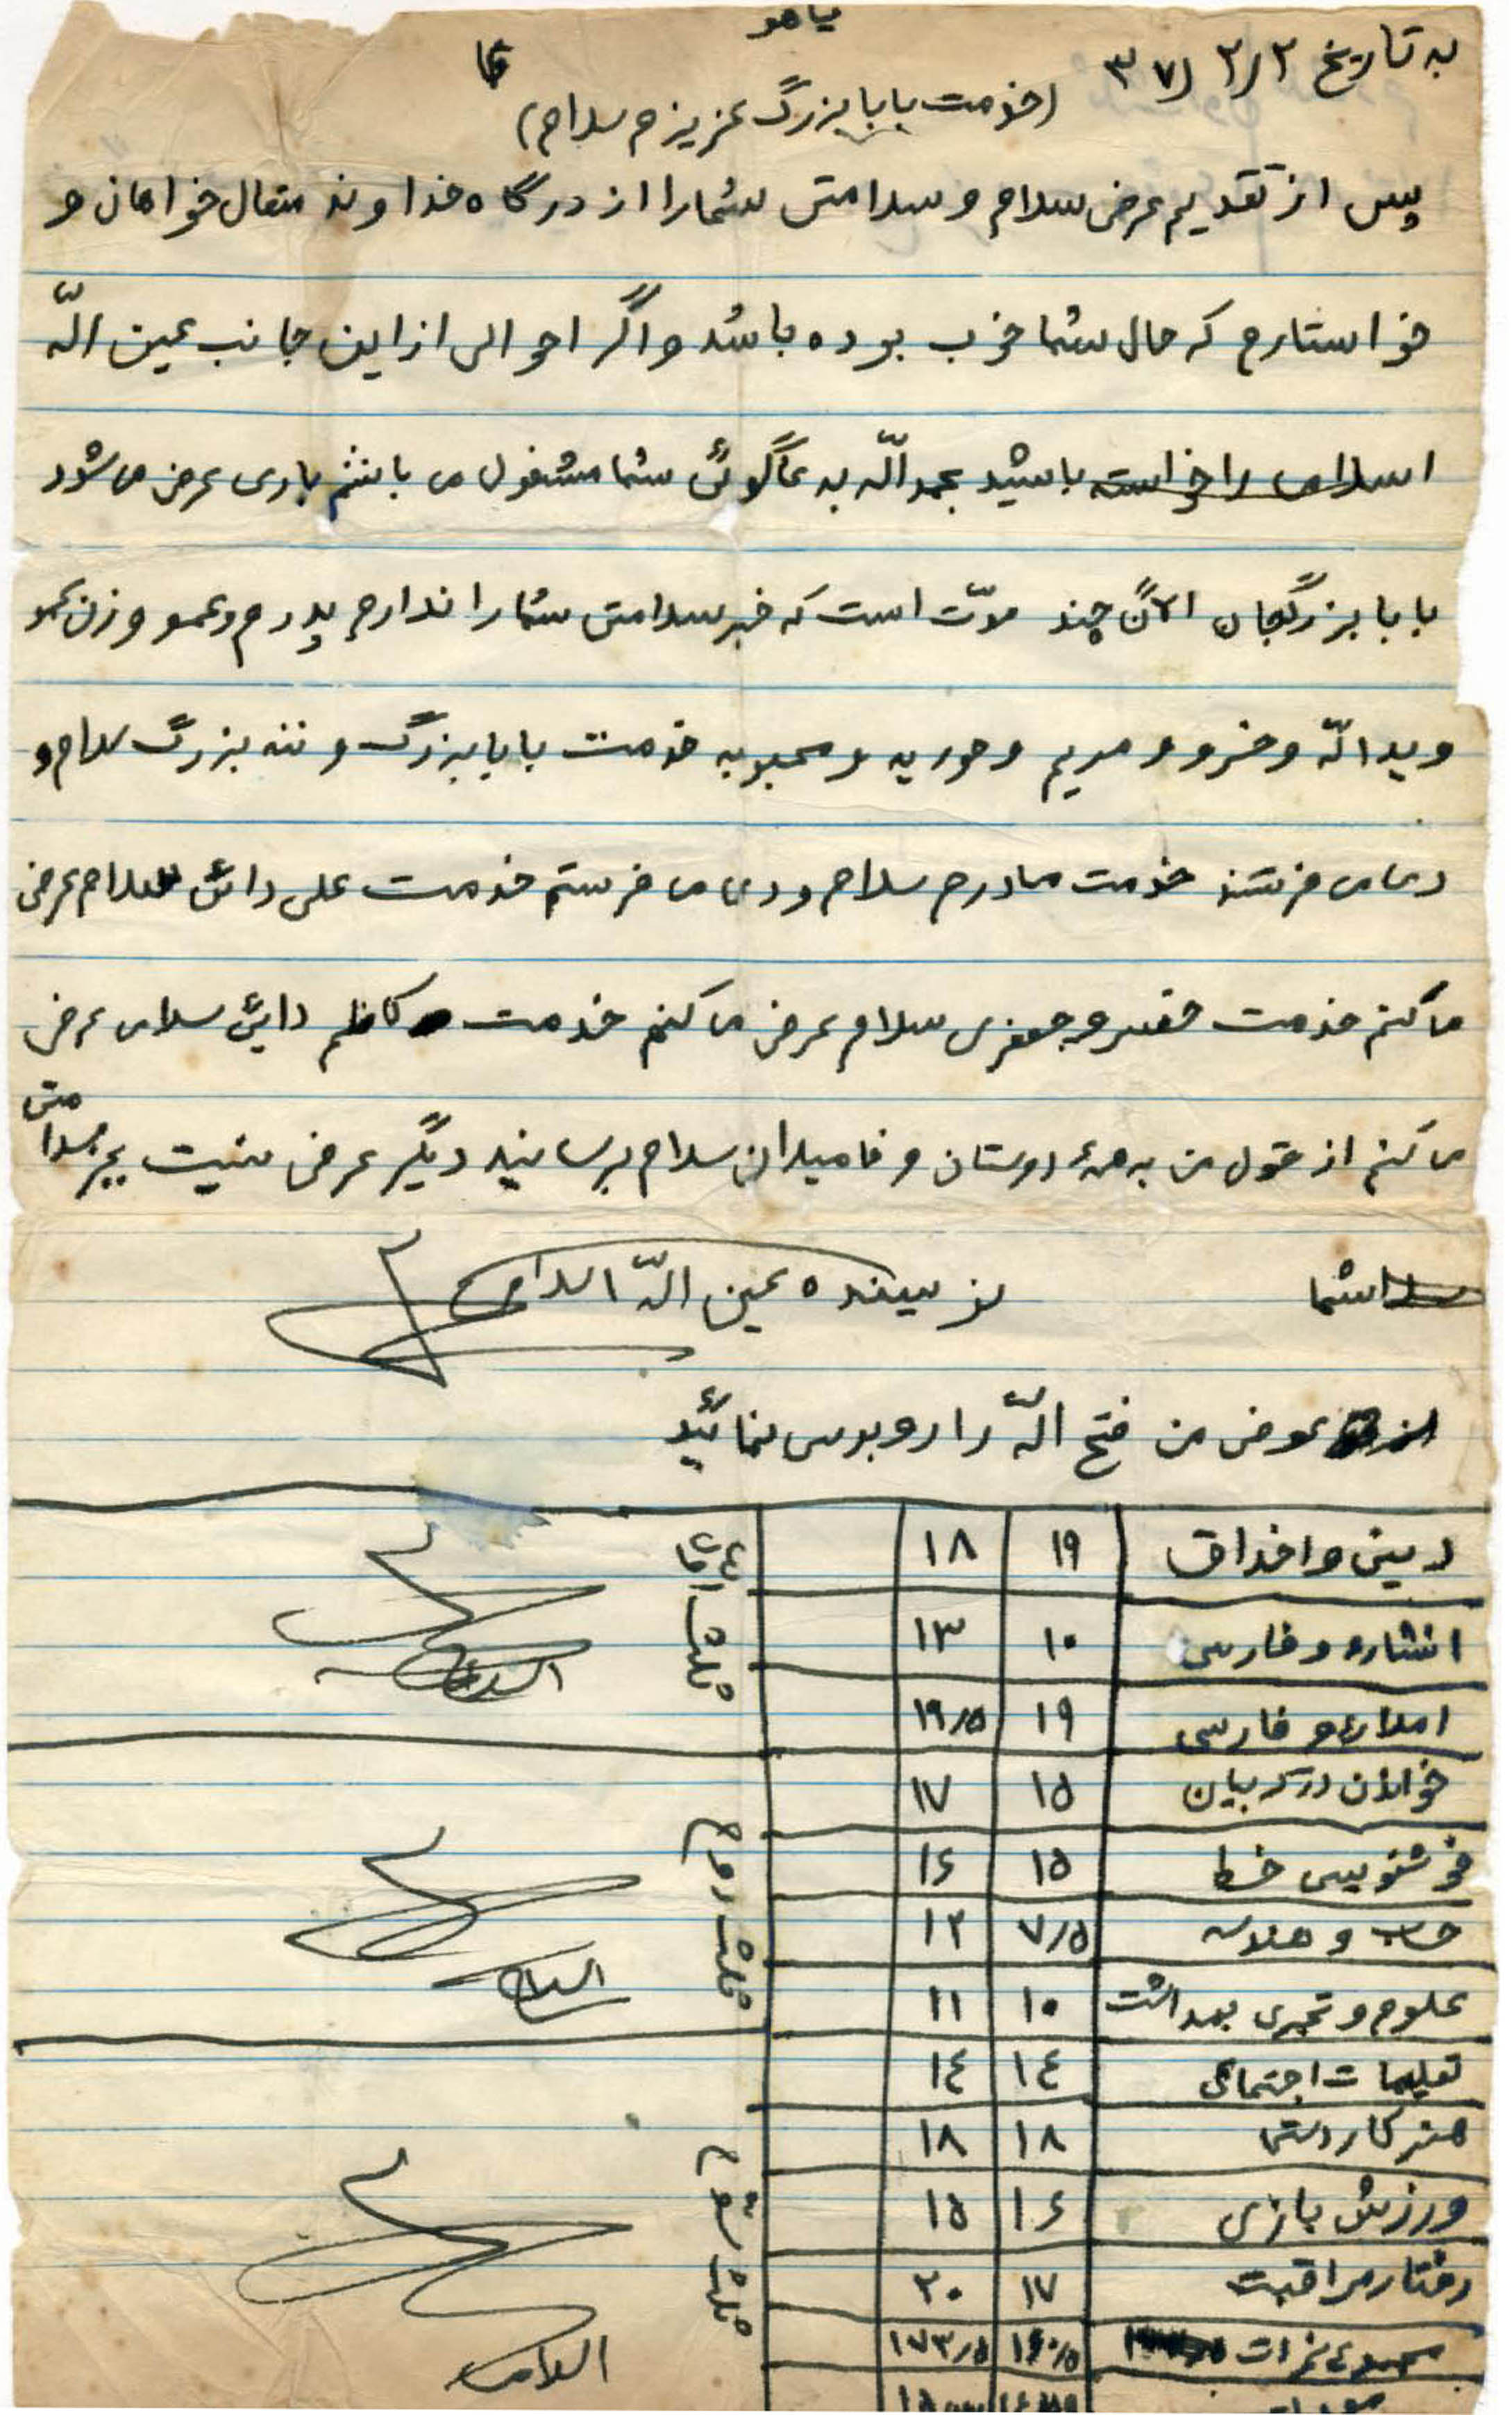 یاهو
به تاریخ ۲/۲/ ۳۷
(خدمت بابابزرگ عزیزم سلام)
پس از تقدیم عرض سلام و سلامتی شما را از درگاه خداوند متعال خواهان و
خواستارم که حال شما خوب بوده باشد و اگر احوالی از این جانب عین الله
اسلامی را خواسته باشید بحمدالله به دعاگوئی شما مشغول می باشم باری عرض می شود
بابابزرگجان الآن چند مدّت است که خبر سلامتی شما را ندارم پدرم و عمو و زن عمو
و یدالله و خسرو و مریم و حوریه و محبوبه خدمت بابابزرگ و ننه بزرگ سلام و
دعا می فرستند خدمت مادرم سلام و دعا می فرستم خدمت علی دائی سلام عرض
می کنم خدمت و جعفری سلام عرض می کنم خدمت کاظم دایی سلامی عرض
می کنم از قول من به همهٔ دوستان و فامیلان سلام برسانید دیگر عرضی نیست بجز سلامتی
شما
نویسنده عین الله اسلامی
عوض من فتح الله را روبوسی نمائید
دینی و اخلاق ۱۹ ۱۸
انشاء و فارسی ۱۰ ۱۳
املاء و فارسی ۱۹ ۱۹/۵
خواندن درک بیان ۱۵ ۱۷
خوشنویسی خط ۱۵ ۱۶
حساب و هندسه ۷/۵ ۱۲
علوم و تجربی بهداشت ۱۰ ۱۱
تعلیمات اجتماعی ۱۴ ۱۴
هنر کاردستی ۱۸ ۱۸
ورزش بازی ۱۶ ۱۵
رفتار مراقبت ۱۷ ۲۰
مجموع نمرات ۱۶۰/۵ ۱۷۳/۵
ثلث اول
اسلامی
ثلث دوم
اسلامی
ثلث سوم
اسلامی